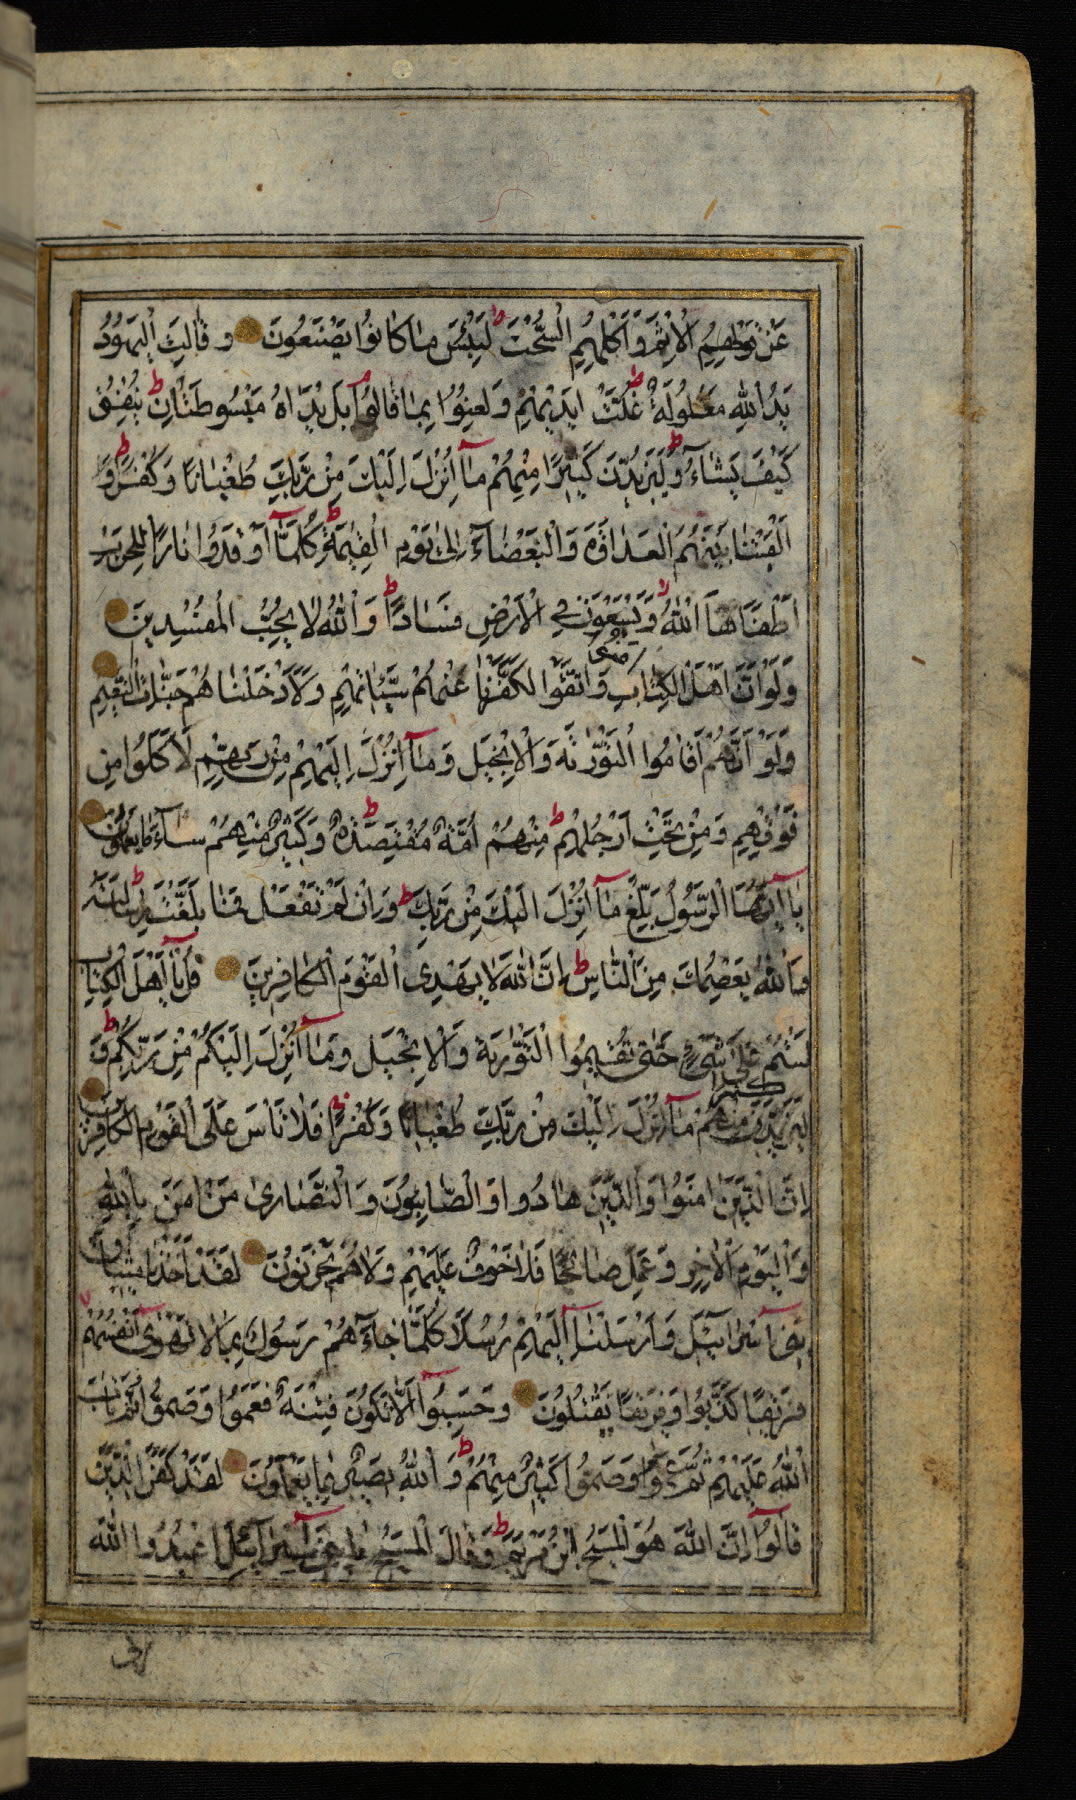 عَنْ قَوْلِهِمُ الْاِثْمَ وَاَكْلِهِمُ السُّحْتَ لَبِئْسَ مَا كَانُوا يَصْنَعُونَ وَقَالَتِ الْيَهُودُ
يَدُ اللهِ مَغْلُولَةٌ غُلَّتْ اَيْدِيهِمْ وَلُعِنُوا بِمَا قَالُوا بَلْ يَدَاهُ مَبْسُوطَتَانِ يُنْفِقُ
كَيْفَ يَشَاءُ وَلَيَزِيدَنَّ كَثِيرًا مِنْهُمْ مَا اُنْزِلَ اِلَيْكَ مِنْ رَبِّكَ طُغْيَانًا وَكُفْرًا وَ
اَلْقَيْنَا بَيْنَهُمُ الْعَدَاوَةَ وَالْبَغْضَاءَ اِلٰى يَوْمِ الْقِيٰمَةِ كُلَّمَا اَوْقَدُوا نَارًا لِلْحَرْبِ
اَطْفَاَهَا اللهُ وَيَسْعَوْنَ فِي الْاَرْضِ فَسَادًا وَاللهُ لَا يُحِبُّ الْمُفْسِدِينَ
وَلَوْ اَنَّ اَهْلَ الْكِتَابِ اٰمَنُوا وَاتَّقَوْا لَكَفَّرْنَا عَنْهُمْ سَيِّئَاتِهِمْ وَلَاَدْخَلْنَاهُمْ جَنَّاتِ النَّعِيمِ
وَلَوْ اَنَّهُمْ اَقَامُوا التَّوْرٰيةَ وَالْاِنْجِيلَ وَمَا اُنْزِلَ اِلَيْهِمْ مِنْ رَبِّهِمْ لَاَكَلُوا مِنْ
فَوْقِهِمْ وَمِنْ تَحْتِ اَرْجُلِهِمْ مِنْهُمْ اُمَّةٌ مُقْتَصِدَةٌ وَكَثِيرٌ مِنْهُمْ سَاءَ مَا يَعْمَلُونَ
يَا اَيُّهَا الرَّسُولُ بَلِّغْ مَا اُنْزِلَ اِلَيْكَ مِنْ رَبِّكَ وَاِنْ لَمْ تَفْعَلْ فَمَا بَلَّغْتَ رِسَالَتَهُ
وَاللهُ يَعْصِمُكَ مِنَ النَّاسِ اِنَّ اللهَ لَا يَهْدِي الْقَوْمَ الْكَافِرِينَ قُلْ يَا اَهْلَ الْكِتَابِ
لَسْتُمْ عَلٰى شَيْءٍ حَتّٰى تُقِيمُوا التَّوْرٰيةَ وَالْاِنْجِيلَ وَمَا اُنْزِلَ اِلَيْكُمْ مِنْ رَبِّكُمْ وَ
لَيَزِيدَنَّ كَثِيرًا مِنْهُمْ مَا اُنْزِلَ اِلَيْكَ مِنْ رَبِّكَ طُغْيَانًا وَكُفْرًا فَلَا تَاْسَ عَلَى الْقَوْمِ الْكَافِرِينَ
اِنَّ الَّذِينَ اٰمَنُوا وَالَّذِينَ هَادُوا وَالصَّابِئُونَ وَالنَّصَارٰى مَنْ اٰمَنَ بِاللهِ
وَالْيَوْمِ الْاٰخِرِ وَعَمِلَ صَالِحًا فَلَا خَوْفٌ عَلَيْهِمْ وَلَا هُمْ يَحْزَنُونَ لَقَدْ اَخَذْنَا مِيثَاقَ
بَنِي اِسْرَائِيلَ وَاَرْسَلْنَا اِلَيْهِمْ رُسُلًا كُلَّمَا جَاءَهُمْ رَسُولٌ بِمَا لَا تَهْوٰى اَنْفُسُهُمْ
فَرِيقًا كَذَّبُوا وَفَرِيقًا يَقْتُلُونَ وَحَسِبُوا اَلَّا تَكُونَ فِتْنَةٌ فَعَمُوا وَصَمُّوا ثُمَّ تَابَ
اللهُ عَلَيْهِمْ ثُمَّ عَمُوا وَصَمُّوا كَثِيرٌ مِنْهُمْ وَاللهُ بَصِيرٌ بِمَا يَعْمَلُونَ لَقَدْ كَفَرَ الَّذِينَ
قَالُوا اِنَّ اللهَ هُوَ الْمَسِيحُ ابْنُ مَرْيَمَ وَقَالَ الْمَسِيحُ يَا بَنِي اِسْرَائِيلَ اعْبُدُوا اللهَ